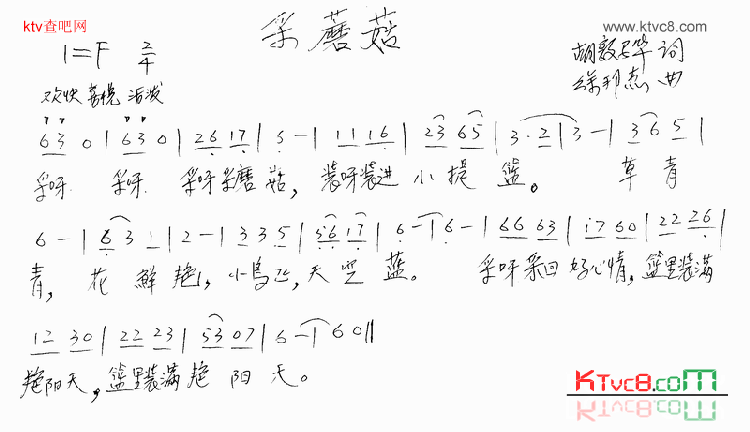 ktv查吧网
www.ktvc8.com
采蘑菇
1=F 2/4
胡敦骅 词
徐邦杰 曲
欢快 喜悦 活泼
63 0 | 63 0 | 26 17 | 5 - | 11 16 | 23 65 | 3·2 | 3 - | 36 5 |
采呀 采呀 采呀采蘑菇，装呀装进小提篮。 草青
6 - | 63 | 2 - | 33 5 | 56 17 | 6 - | 6 - | 66 63 | 17 60 | 22 26 |
青，花鲜艳，小鸟飞，天空蓝。 采呀采回好心情，篮里装满
12 30 | 22 23 | 53 07 | 6 - | 60 ‖
艳阳天，篮里装满艳阳天。
KTvc8.com